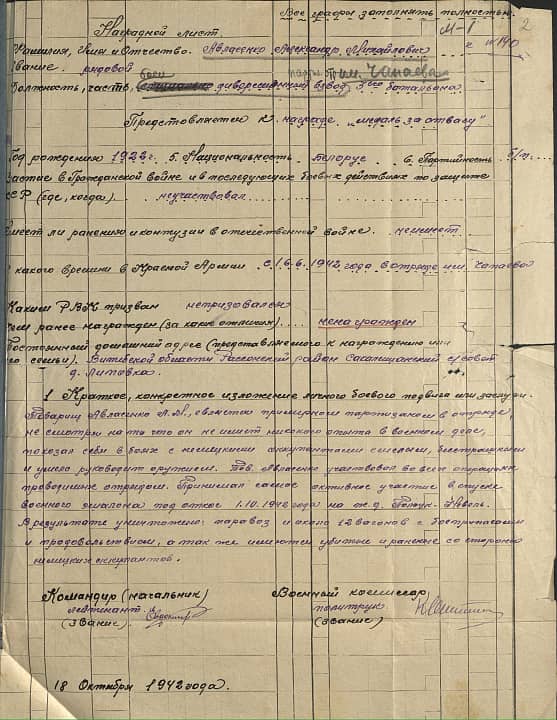 Все графы заполнять полностью.
М-1 2
Наградной лист. к №140
Фамилия, Имя и Отчество. Авласенко Александр Михайлович
Звание. рядовой парт. отр. им. Чапаева
Должность, часть, боец диверсионный взвод, баталиона
Предстовляется к награде „медаль за отвагу"
Год рождения 1922 г. 5. Национальность Белорус 6. Партийность б/п
Участие в Гражданской войне и в последующих боевых действиях по защите
СССР (где, когда).... неучаствовал
Имеет ли ранения и контузии в отечественной войне. неимеет
С какого времени в Красной Армии с 1.6.6. 1942 года в отряде им. Чапаева
Каким РВК призван непризовался
Чем ранее награжден (за какие отличия).... ненагражден
Постоянный домашний адрес (представляемого к награждению или
его семьи). Витебской области Россонский район Сакалищанский с/совет
д. Липовка.
1 Краткое, конкретное изложение личного боевого подвига или заслуги.
Товарищ Авласенко А.М., является примерным партизаном в отряде,
не смотря на то что он не имеет никакого опыта в военном деле,
показал себя в боях с немецкими оккупантами смелым, бесстрашным
и умело руководит оружием. Тов. Авласенко участвовал во всех операциях
проводимых отрядом. Принимал самое активное участие в спуске
военного эшалона под откос 1.10.1942 года на ж.д. Полоцк - Невель.
В результате уничтожено: паравоз и около 12 вагонов с боеприпасами
и продовольствием, а так же имеются убитые и раненые со стороны
немецких оккупантов.
Командир (начальник) Военный комиссар
лейтинант. политрук
(звание). (звание)
18 Октября 1942 года.